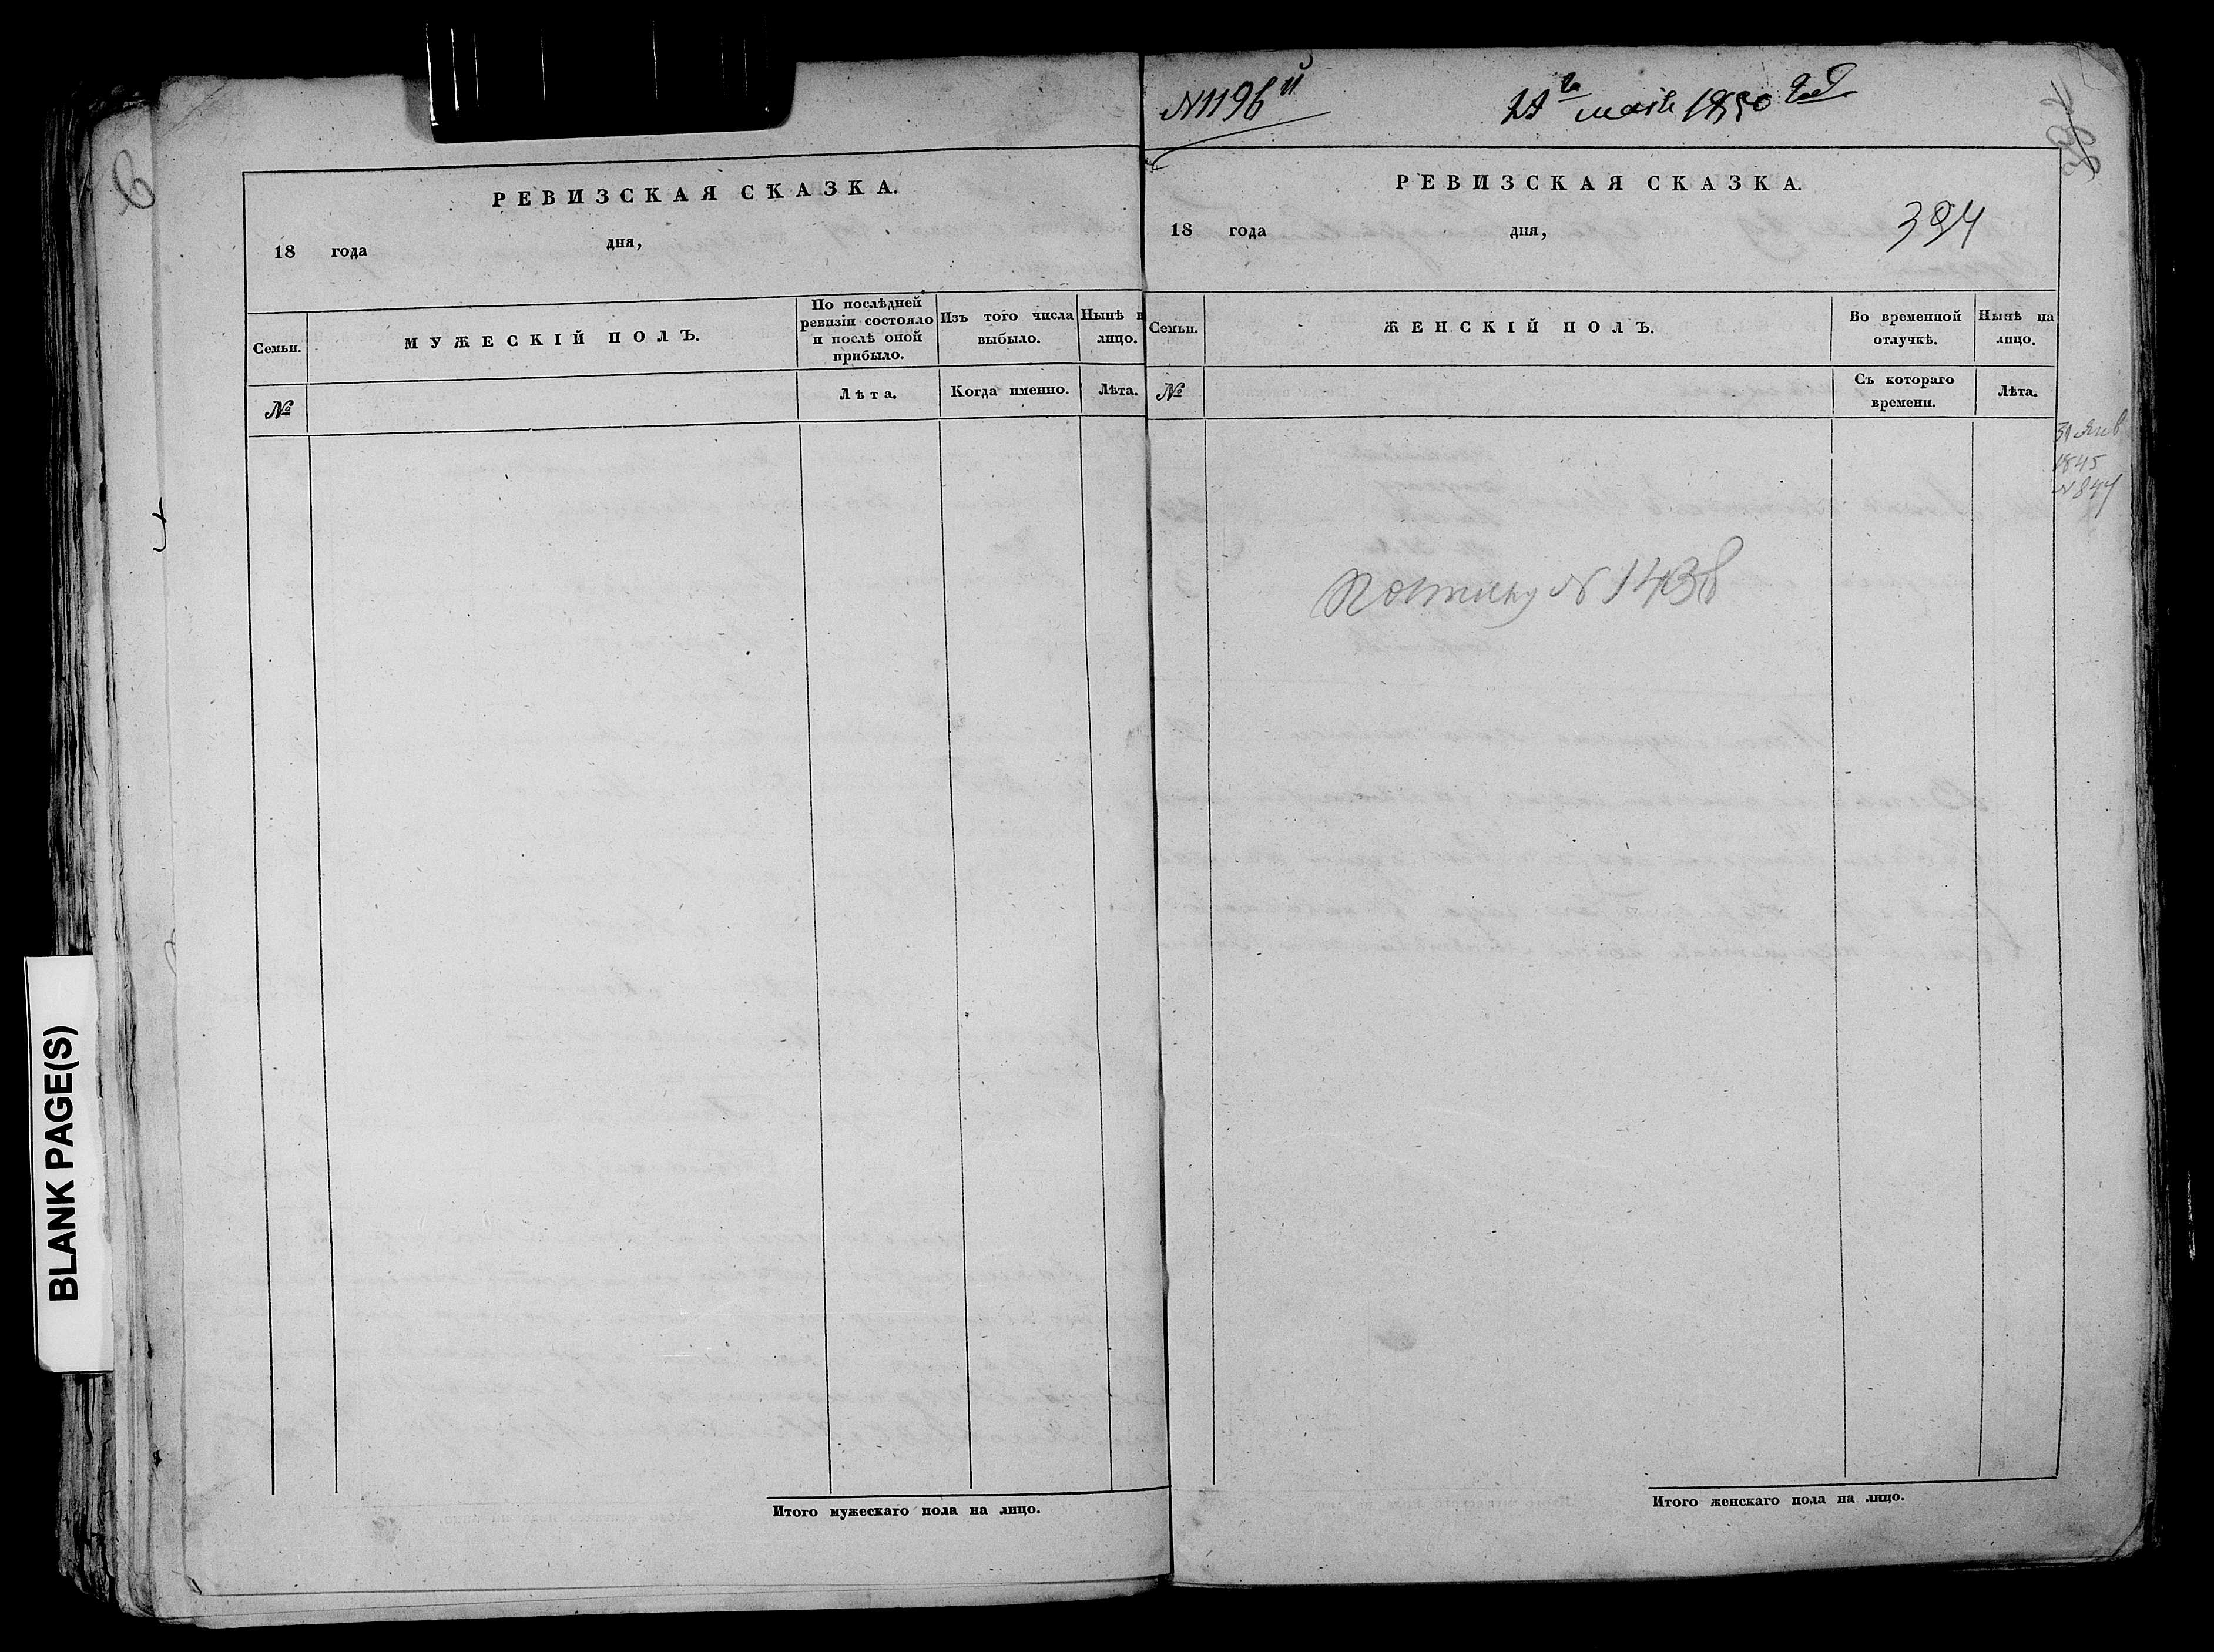 BLANK PAGE(S)
РЕВИЗСКАЯ СКАЗКА.
18 года дня,
Семьи.
МУЖЕСКІЙ ПОЛЪ.
По послѣдней
ревизіи состояло
и послѣ оной
прибыло.
Изъ того числа
выбыло.
Нынѣ н
лицо.
№
Лѣта.
Когда именно.
Лѣта.
Итого мужескаго пола на лицо.
N 1196
мая 1850
РЕВИЗСКАЯ СКАЗКА.
394
18 года дня,
Семьи.
ЖЕНСКІЙ ПОЛЪ.
Во временной
отлучкѣ.
Нынѣ на
лицо.
№
Съ котораго
времени.
Лѣта.
31 Янв
1845
N 847
N 1438
Итого женскаго пола на лицо.